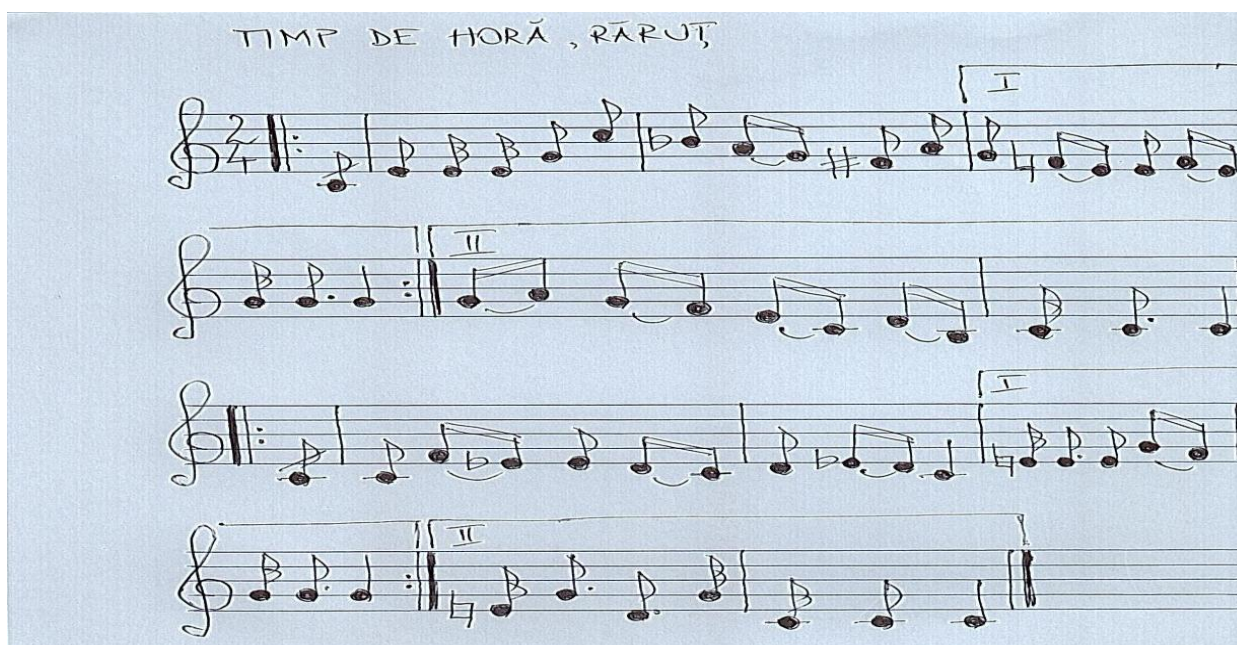 TIMP DE HORĂ, RĂRUȚ
I
2
4
II
I
II